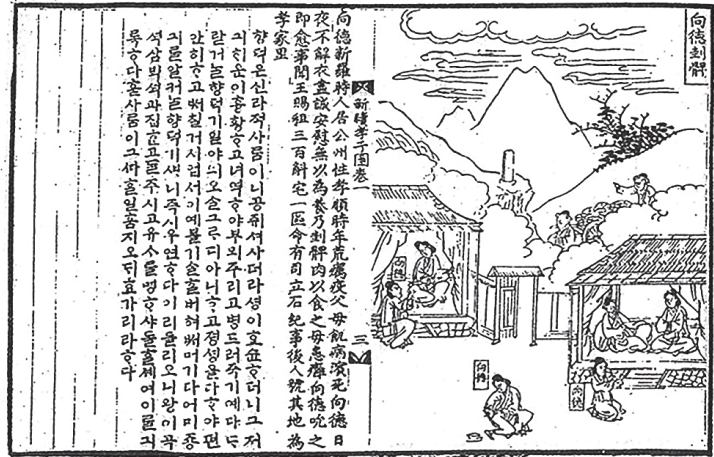 向德刲髀
向德
向德
向德
向德
新續孝子圖卷一
三
向德新羅時人居公州性孝順時年荒癘疫父母飢病濱死向德日
夜不解衣盡誠安慰無以為養乃刲髀肉以食之母患癰向德吮之
即愈事聞王賜租三百斛宅一區令有司立石紀事後人號其地為
孝家里
향덕은신라적사ᄅᆞᆷ이니공쥐셔사더라셩이효슌ᄒᆞ더니그저
긔ᄒᆡ운이흉황ᄒᆞ고녀역ᄒᆞ야부뫼주리고병드러죽기예다ᄃᆞ
랏거늘향덕기일야의오ᄉᆞᆯ그ᄅᆞ디아니ᄒᆞ고졍셩을다ᄒᆞ야편
안히ᄒᆞ고ᄡᅥ칠거시업서이예볼기ᄉᆞᆯᄒᆞᆯ버혀ᄡᅥ머기다어미죵
긔ᄅᆞᆯ알커ᄂᆞᆯ향덕기ᄲᆞ니즉시우연ᄒᆞ다이리들리오니왕이곡
셕삼ᄇᆡᆨ셕과집ᄒᆞᆫ고ᄃᆞᆯ주시고유ᄉᆞᄅᆞᆯ명ᄒᆞ샤돌ᄒᆞᆯ셰여이ᄅᆞᆯ긔
록ᄒᆞ다훗사ᄅᆞᆷ이그ᄯᅡᄒᆞᆯ일홈지오ᄃᆡ효가리라ᄒᆞ다